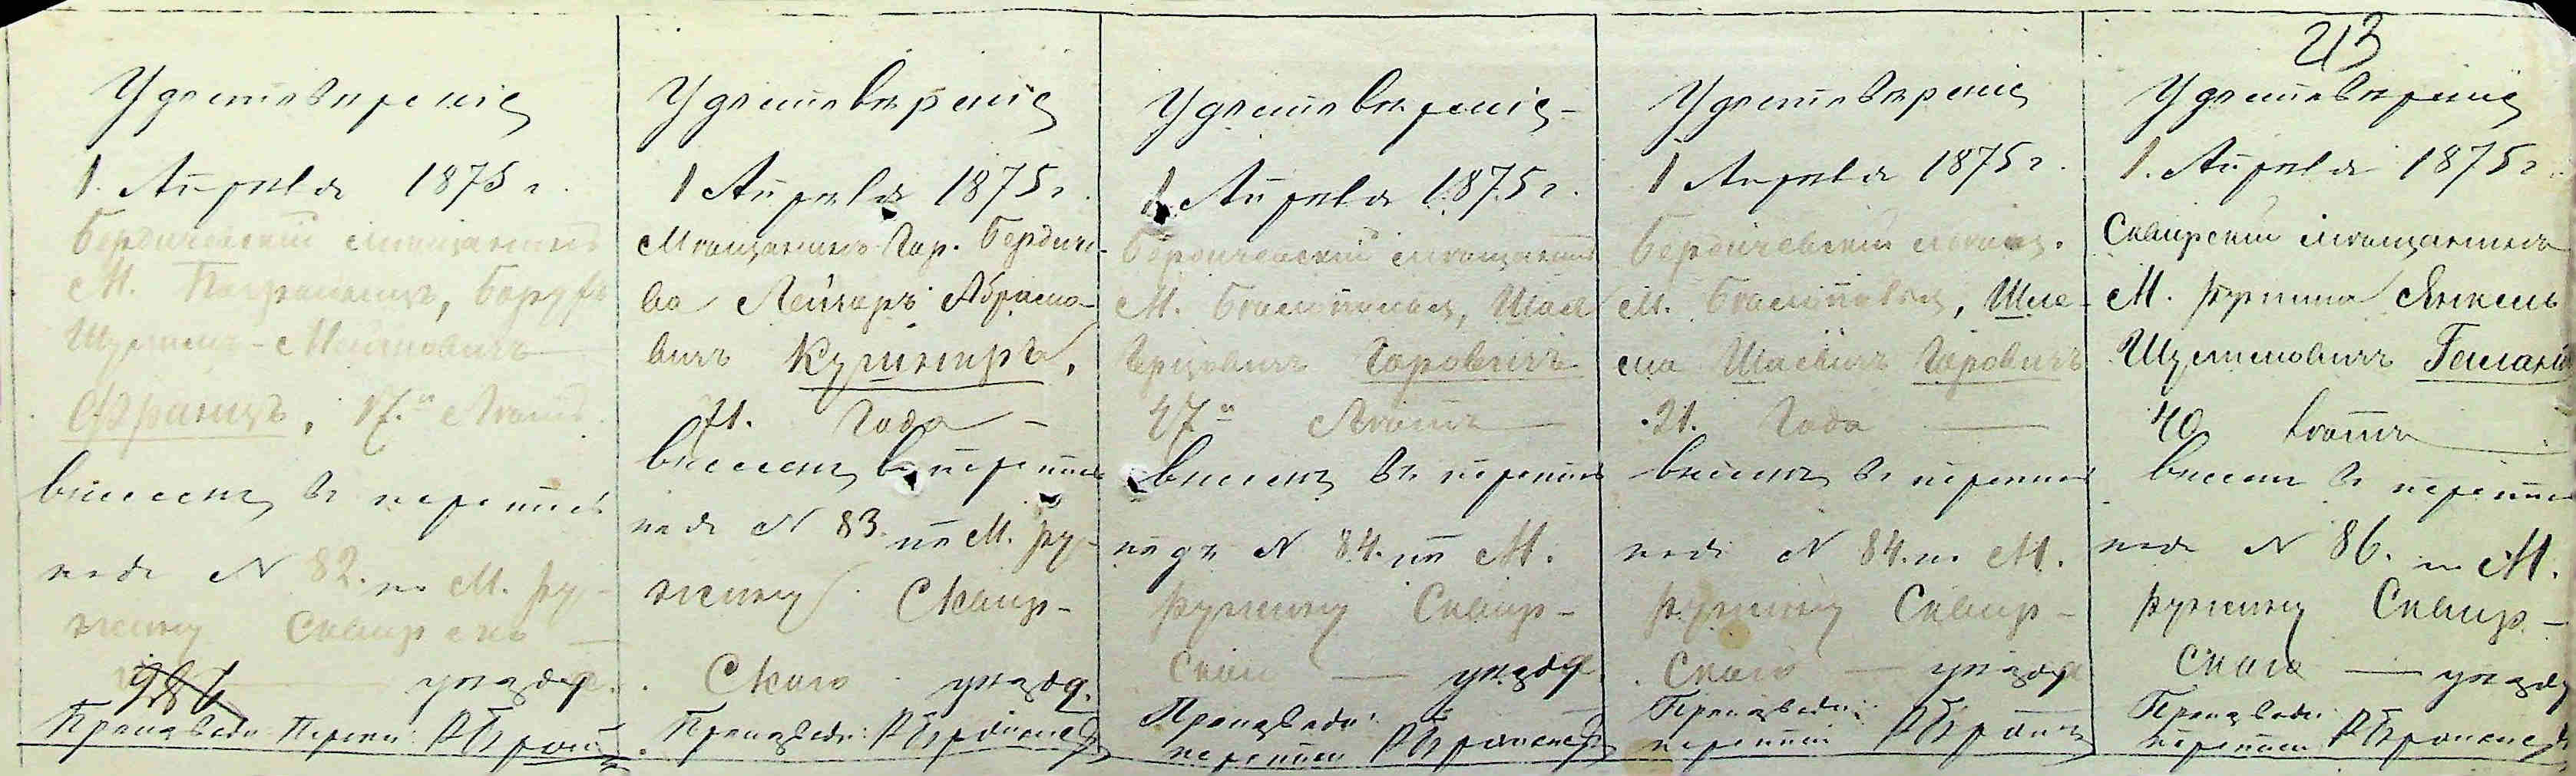 213
Удостоверенie
1. Апреля 1875 г.
Бердичевскiй мещанинъ
М. Борухъ
Шулимъ-Мошковичъ
Францъ, 17.ⁿ летъ
внесенъ въ перепись
подъ N 82. по М. Ру-
жину Сквирска-
го уезда.
986
Производи: Перепи:
Удостоверенie
1 Апреля 1875 г.
Мещанинъ Гор. Бердиче-
ва Лейзеръ Абрамо-
вичъ Кушниръ,
71. года —
внесенъ въ перепись
подъ N 83. по М. Ру-
жину Сквир-
скаго уезда.
Производи:
Удостоверенie
1 Апреля 1875 г.
Бердичевскiй мещанинъ
М. Белиловки, Шая
Герцовичъ Горовичъ
47ⁿ летъ —
внесенъ въ перепись
подъ N 84. по М.
Ружину Сквир-
скаго — уезда
Производи:
переписи
Удостоверенie
1 Апреля 1875 г.
Бердичевскiй мещан.
М. Белиловки, Шле-
ма Шаевичъ Горовичъ
21. года —
внесенъ въ перепись
подъ N 84. по М.
Ружину Сквир-
скаго — уезда
Производи:
переписи
Удостоверенie
1. Апреля 1875 г.
Сквирскiй мещанинъ
М. Ружина Янкель
Шулимовичъ
40 летъ
внесенъ въ перепись
подъ N 86. по М.
Ружину Сквир-
скаго — уезда
Производи:
переписи